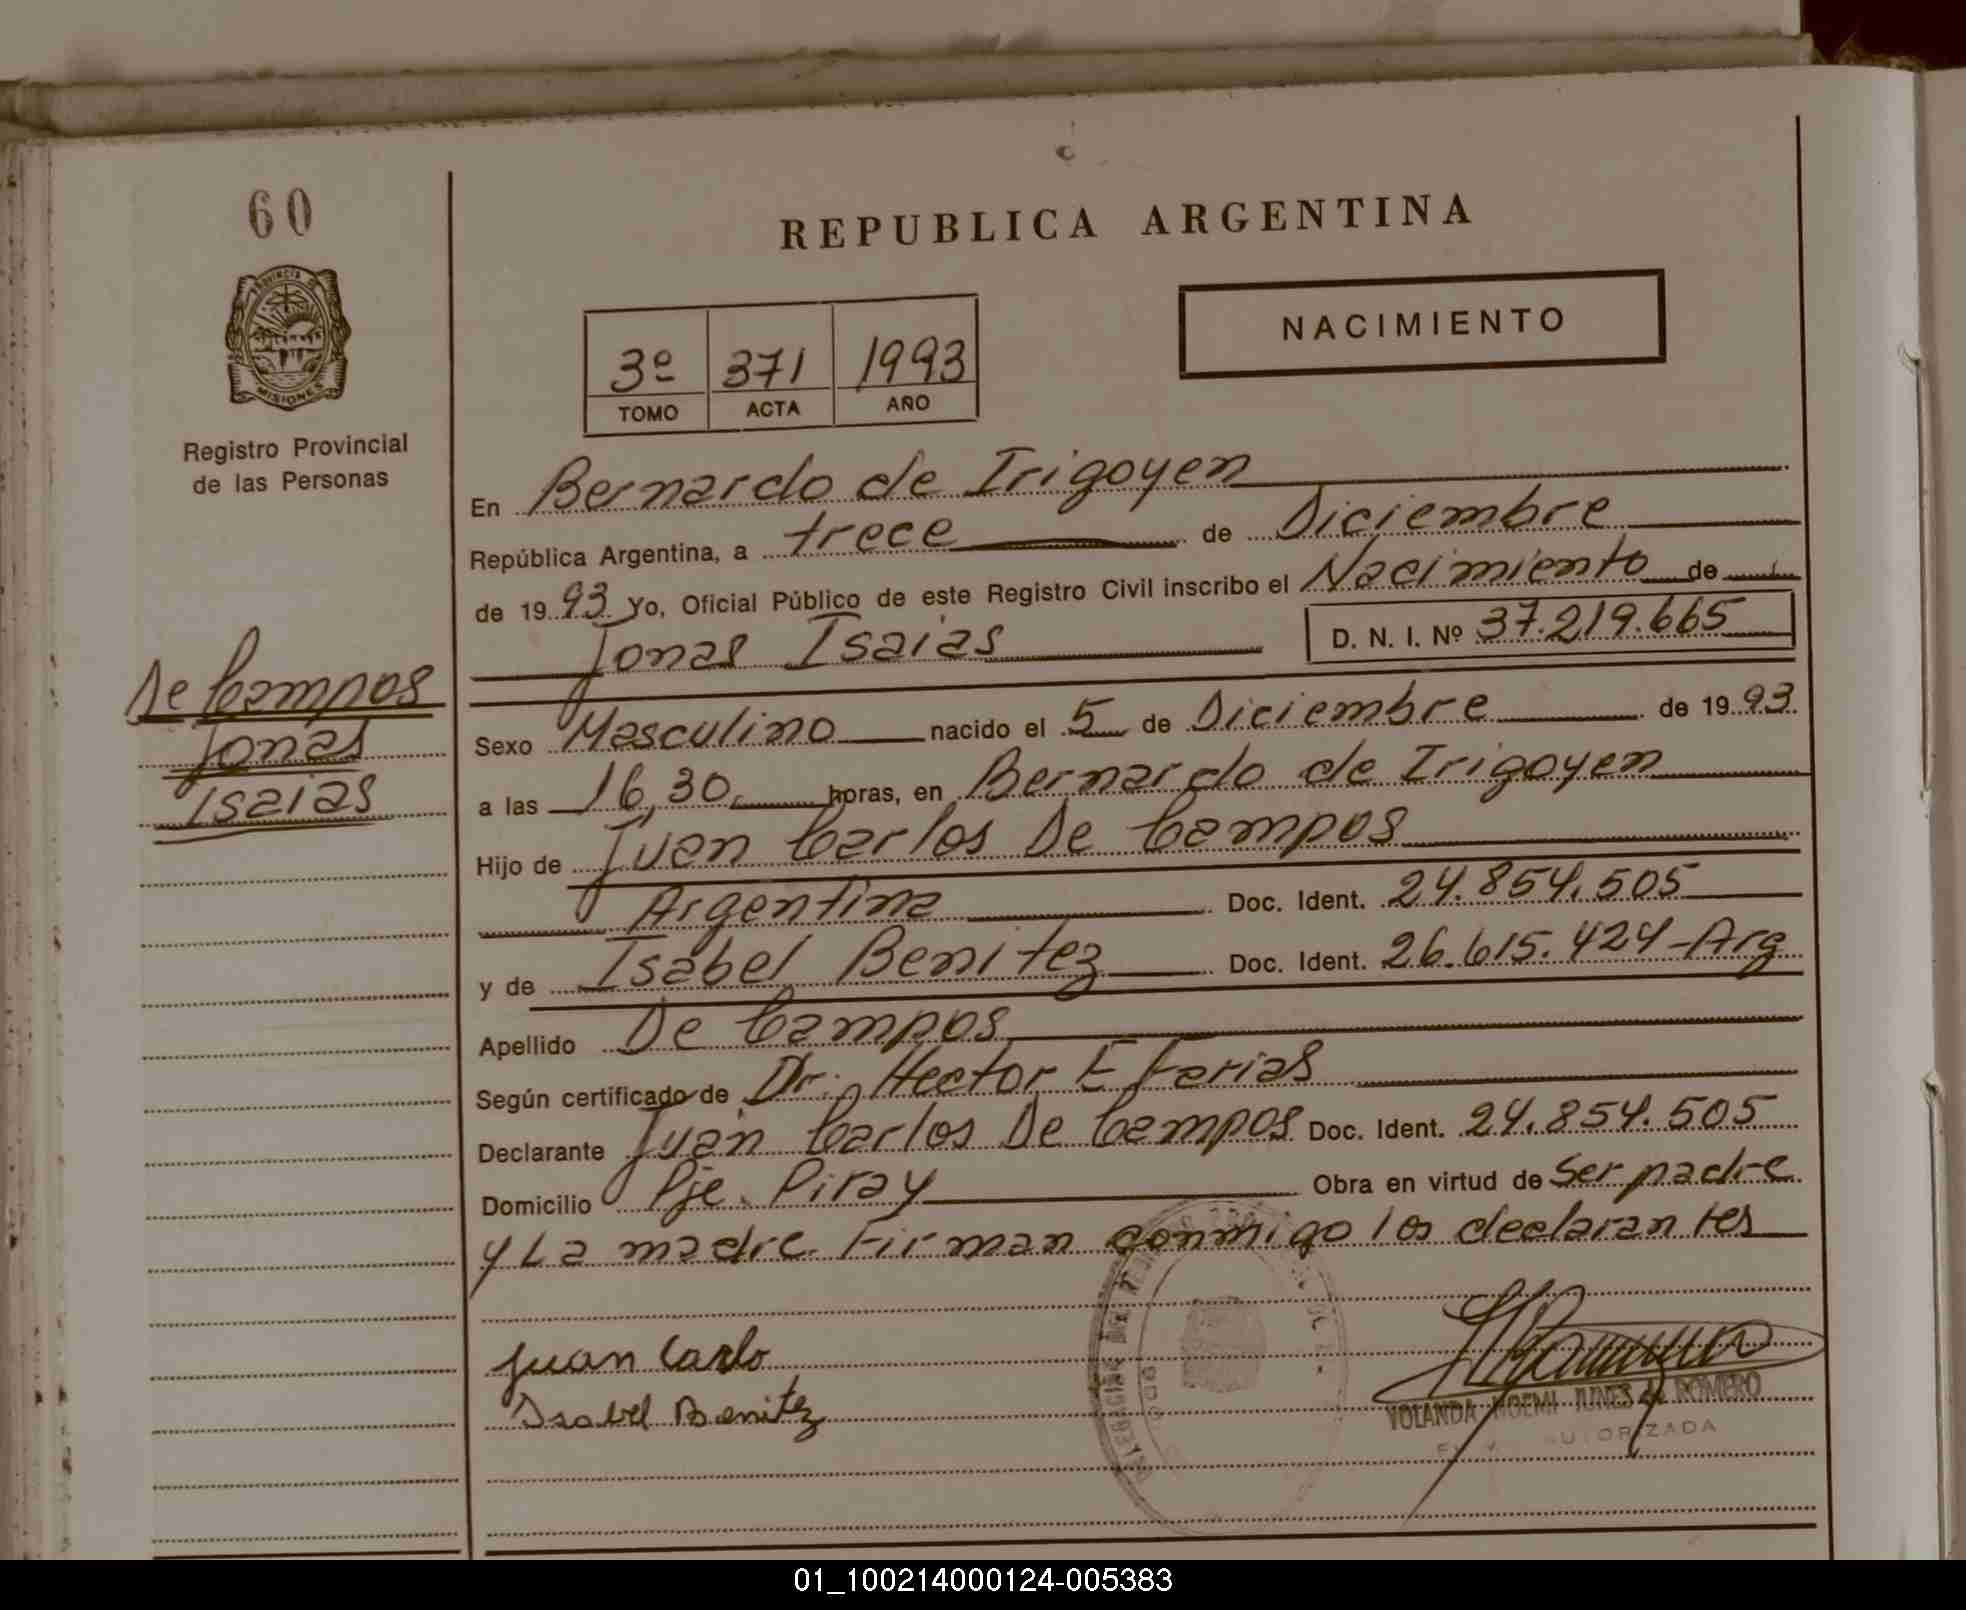 60
REPUBLICA ARGENTINA
PROVINCIA DE
MISIONES
NACIMIENTO
3º 371 1993
TOMO ACTA AÑO
Registro Provincial
de las Personas
En Bernardo de Irigoyen
República Argentina, a trece de Diciembre
de 1993 Yo, Oficial Público de este Registro Civil inscribo el Nacimiento de
Jonas Isaias D. N. I. Nº 37.219.665
De Campos
Jonas
Isaias
Sexo Masculino nacido el 5 de Diciembre de 1993
a las 16,30 horas, en Bernardo de Irigoyen
Hijo de Juan Carlos De Campos
Argentina Doc. Ident. 24.854.505
y de Isabel Benitez Doc. Ident. 26.615.424-Arg
Apellido De Campos
Según certificado de Dr. Hector E Farias
Declarante Juan Carlos De Campos Doc. Ident. 24.854.505
Domicilio Pje. Piray Obra en virtud de Ser padre
y La madre. Firman conmigo los declarantes
Juan Carlo
Isabel Benitez
YOLANDA NOEMI JUNES de ROMERO
AUTORIZADA
01_100214000124-005383